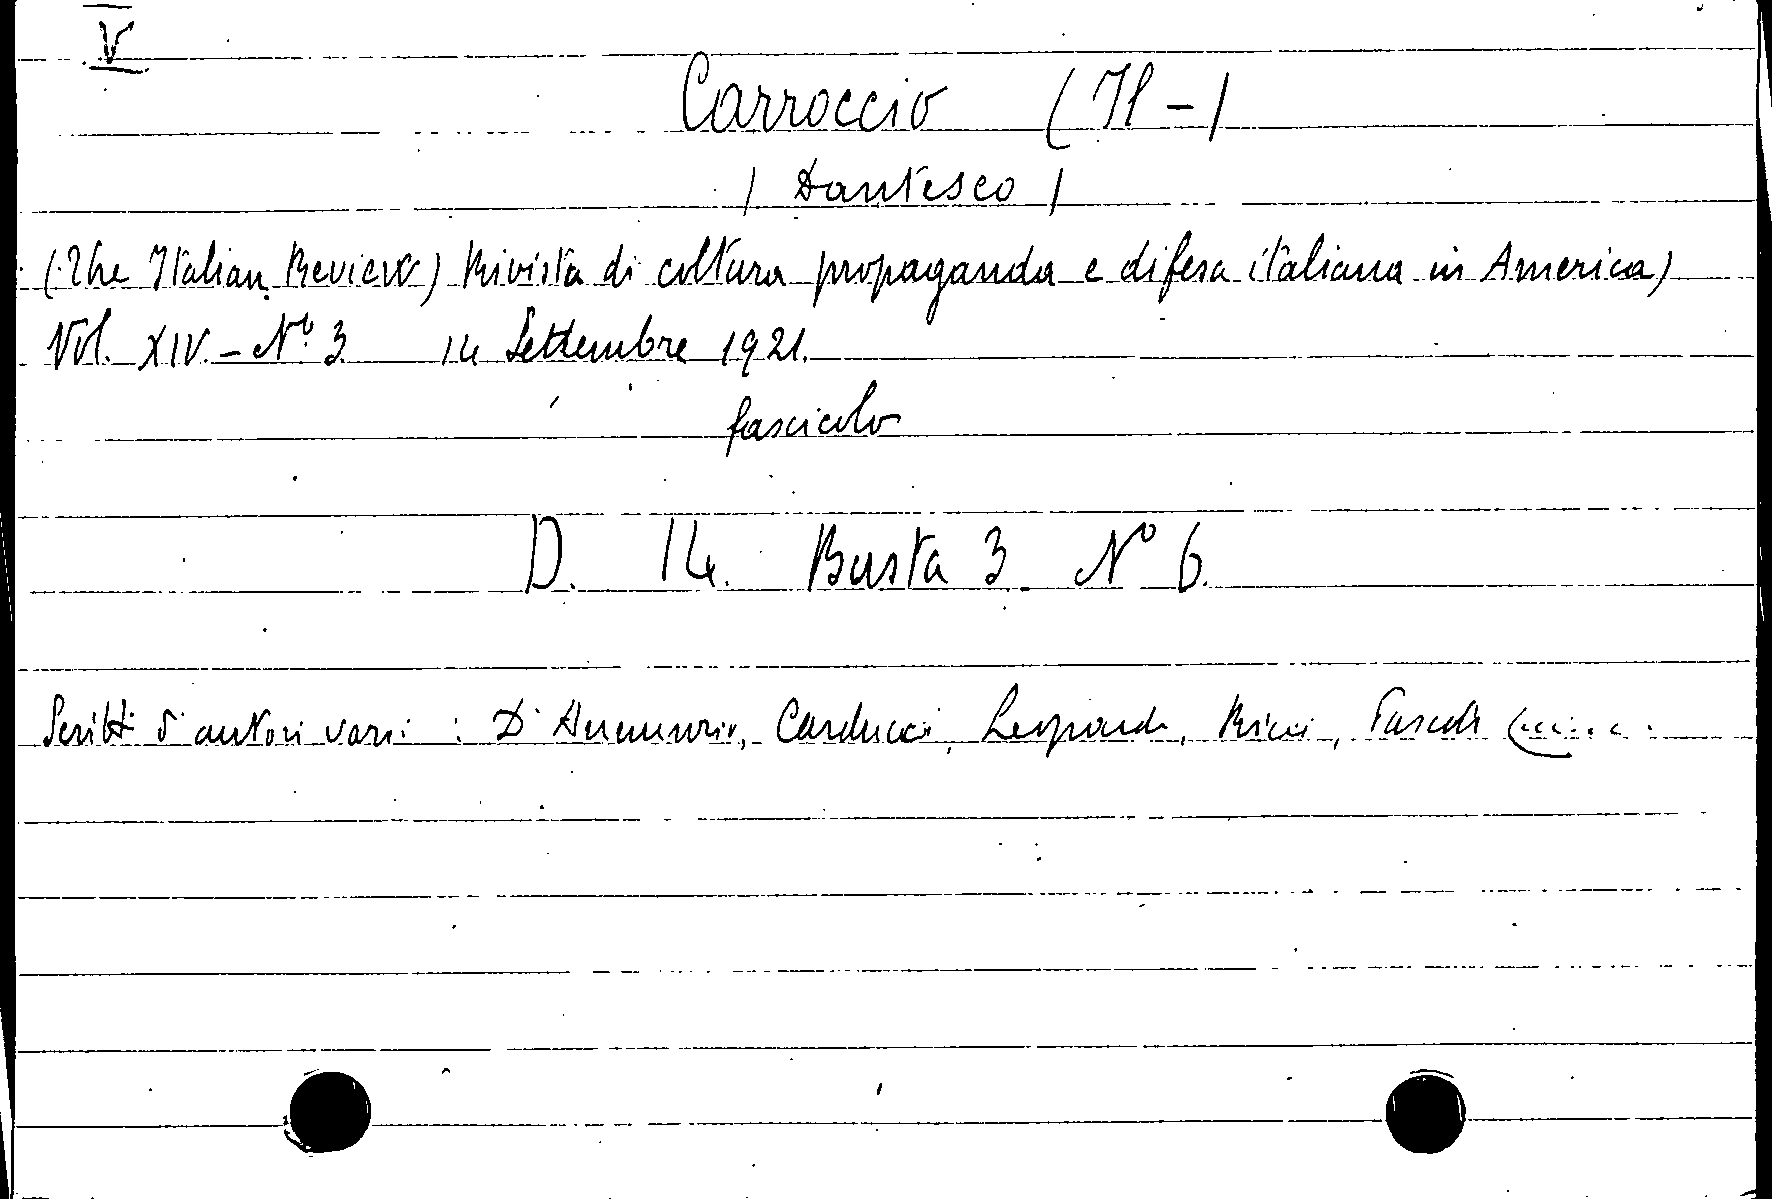 V
Carroccio (Il-)
/ Dantesco /
(The Italian Review) Rivista di coltura propaganda e difesa italiana in America)
Vol. XIV. - N° 3. 14 Settembre 1921.
fascicolo
D. 14. Busta 3 N° 6.
Scritti d'autori varii : D'Annunzio, Carducci, Leopardi, Ricci, Pascoli